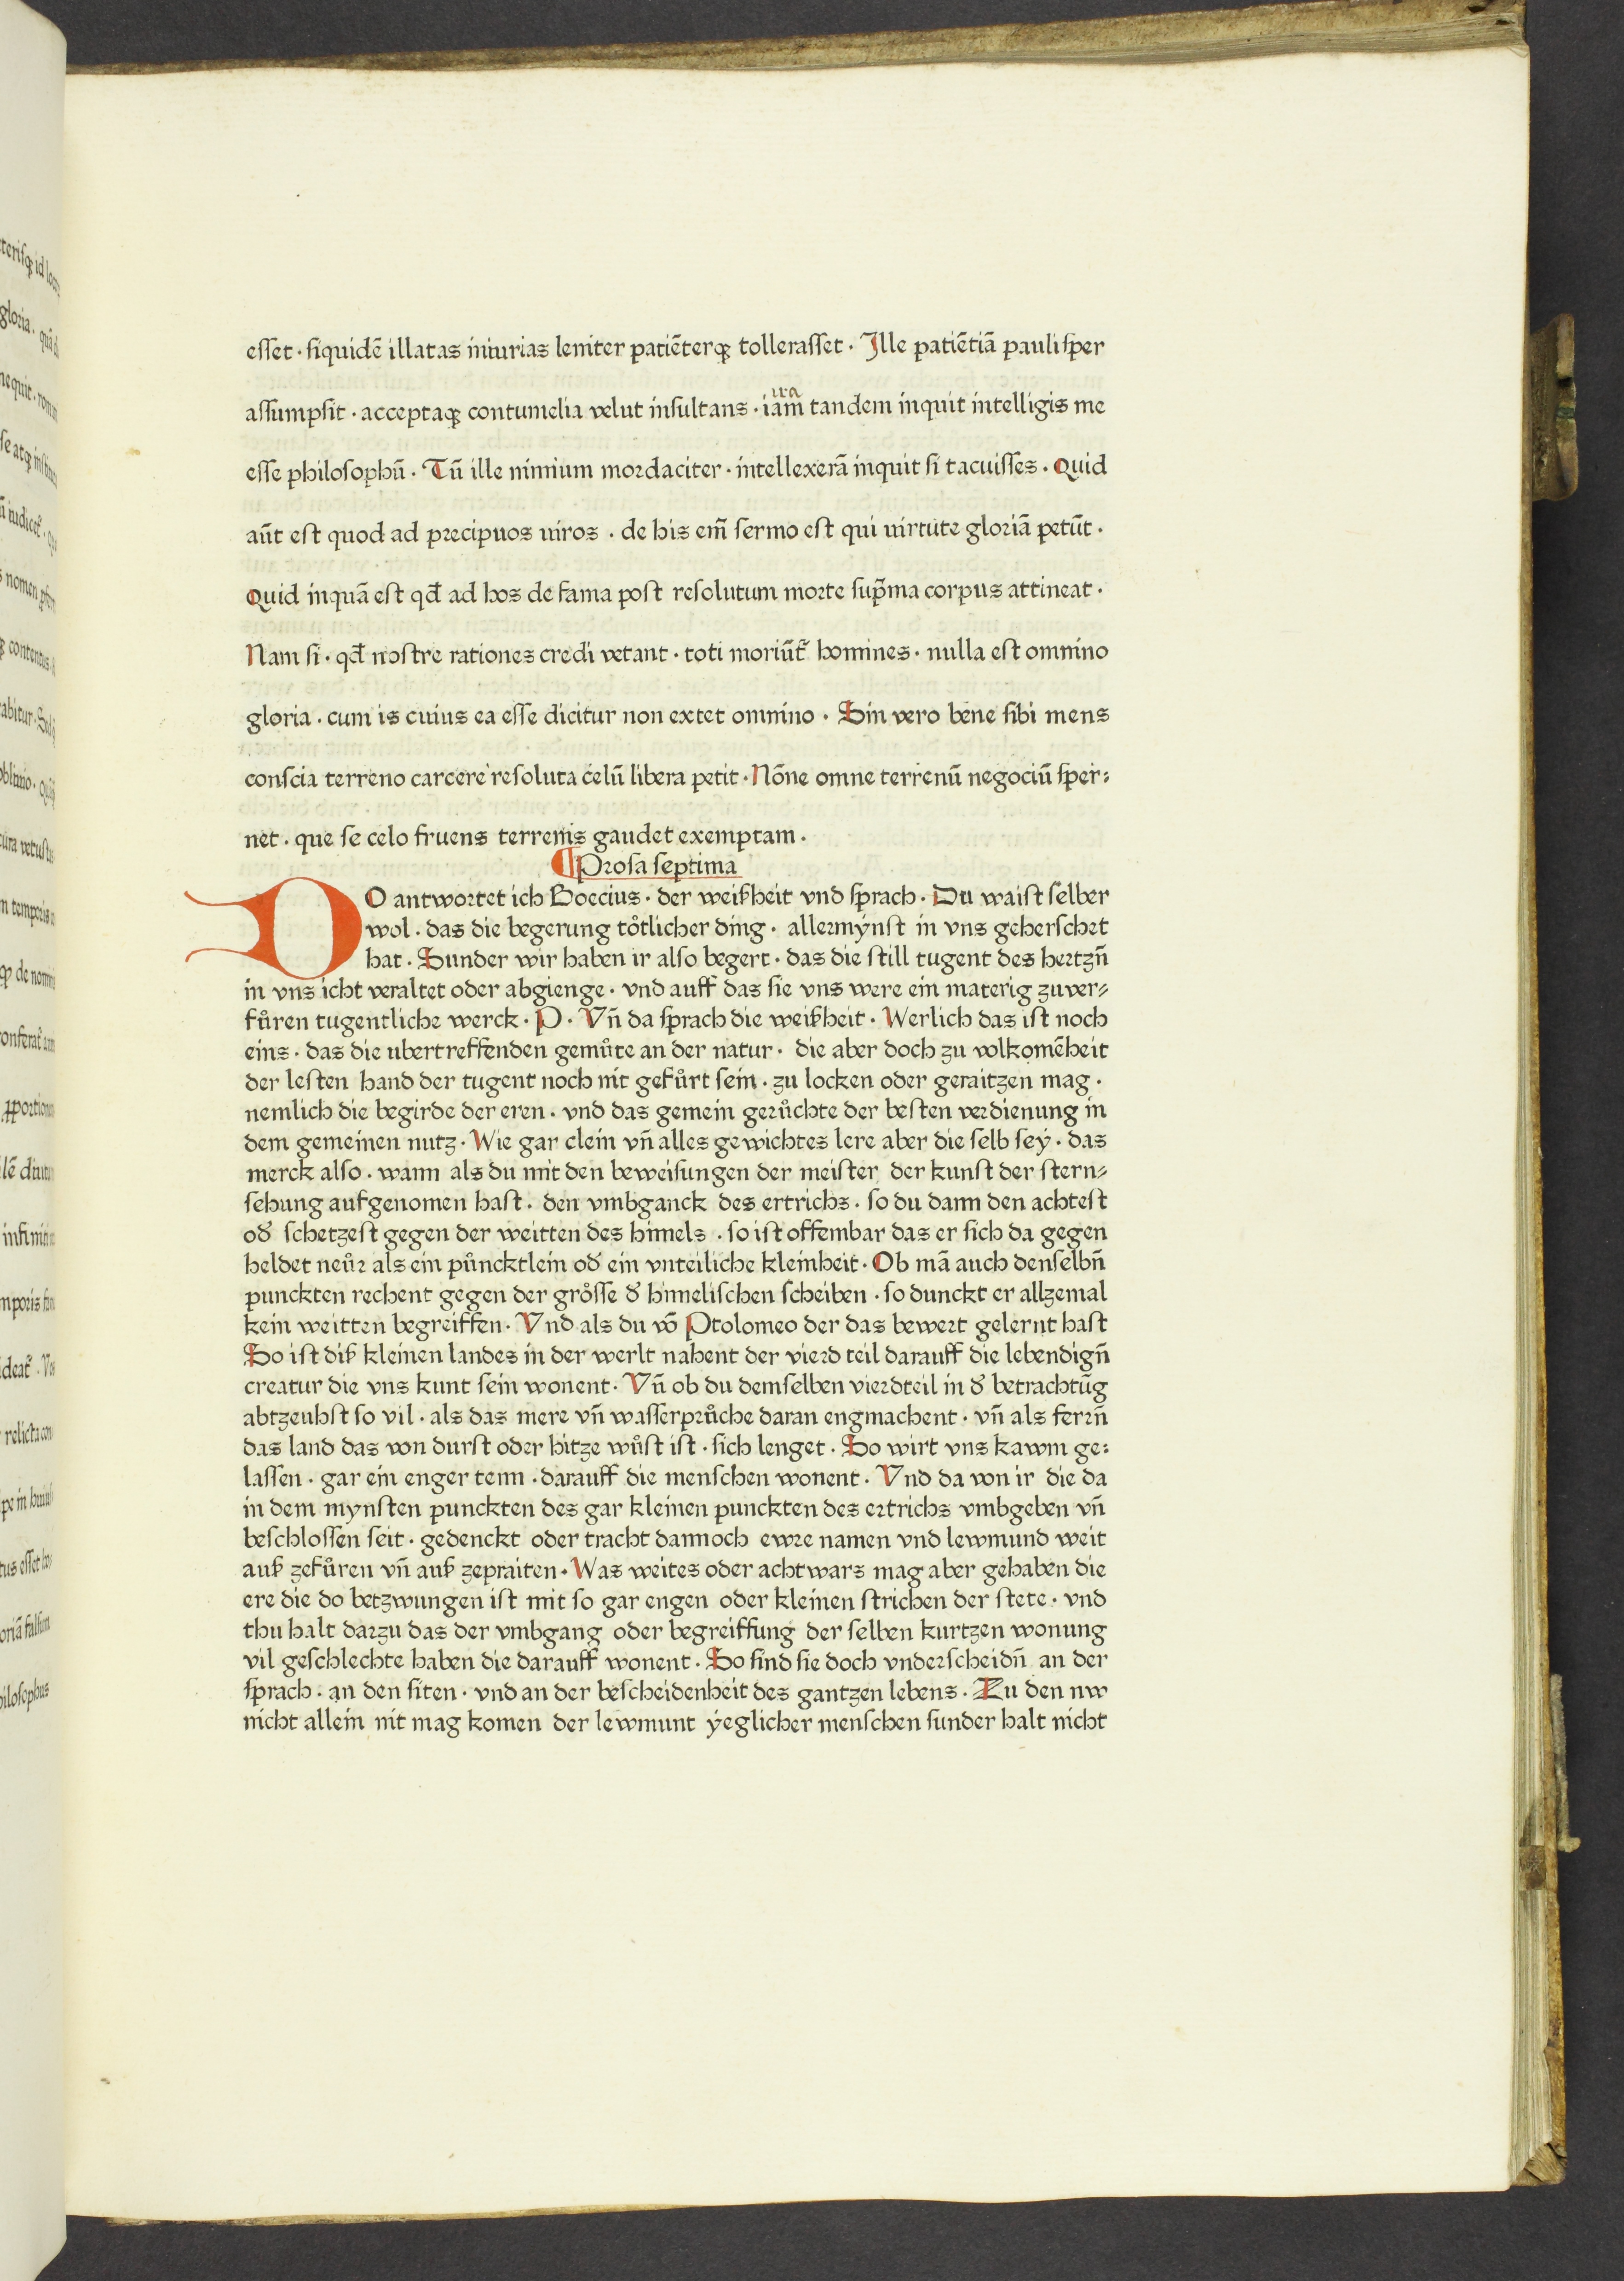 esset · siquidē illatas iniurias leniter patiēterqꝫ tollerasset · Ille patiētiā paulisper
ita
assumpsit · acceptaqꝫ contumelia velut insultans · iam tandem inquit intelligis me
esse philosophū · Tū ille nimium mordaciter · intellexerā inquit si tacuisses · Quid
aūt est quod ad precipuos uiros · de his em̄ sermo est qui uirtute gloriā petūt ·
Quid inquā est qđ ad hos de fama post resolutum morte sup̄ma corpus attineat ·
Nam si · qđ nostre rationes credi vetant · toti moriūt᷑ homines · nulla est omnino
gloria · cum is cuius ea esse dicitur non extet omnino · Sin vero bene sibi mens
conscia terreno carcere resoluta celū libera petit · Nōne omne terrenū negociū sper⸗
net · que se celo fruens terrenis gaudet exemptam ·
¶Prosa septima
DO antwortet ich Boecius · der weißheit vnd sprach · Du waist selber
wol · das die begerung toͤtlicher ding · allermÿnst in vns geherschet
hat · Sunder wir haben ir also begert · das die still tugent des hertzn̄
in vns icht veraltet oder abgienge · vnd auff das sie vns were ein materig zuver⸗
fuͤren tugentliche werck · P · Vn̄ da sprach die weißheit · Werlich das ist noch
eins · das die ubertreffenden gemuͤte an der natur · die aber doch zu volkomēheit
der lesten hand der tugent noch nit gefuͤrt sein · zu locken oder geraitzen mag ·
nemlich die begirde der eren · vnd das gemein geruͤchte der besten verdienung in
dem gemeinen nutz · Wie gar clein vn̄ alles gewichtes lere aber die selb seÿ · das
merck also · wann als du mit den beweisungen der meister der kunst der stern⸗
sehung aufgenomen hast · den vmbganck des ertrichs · so du dann den achtest
od᷑ schetzest gegen der weitten des himels · so ist offembar das er sich da gegen
heldet neuͤr als ein puͤncktlein od᷑ ein vnteiliche kleinheit · Ob mā auch denselbn̄
punckten rechent gegen der groͤsse d᷑ himelischen scheiben · so dunckt er allzemal
kein weitten begreiffen · Vnd als du vō Ptolomeo der das bewert gelernt hast
So ist diß kleinen landes in der werlt nahent der vierd teil darauff die lebendign̄
creatur die vns kunt sein wonent · Vn̄ ob du demselben vierdteil in d᷑ betrachtūg
abtzeuhst so vil · als das mere vn̄ wasserpruͤche daran engmachent · vn̄ als ferrn̄
das land das von durst oder hitze wuͤst ist · sich lenget · So wirt vns kawm ge⸗
lassen · gar ein enger tenn · darauff die menschen wonent · Vnd da von ir die da
in dem mynsten punckten des gar kleinen punckten des ertrichs vmbgeben vn̄
beschlossen seit · gedenckt oder tracht dannoch ewre namen vnd lewmund weit
auß zefuͤren vn̄ auß zepraiten · Was weites oder achtwars mag aber gehaben die
ere die do betzwungen ist mit so gar engen oder kleinen strichen der stete · vnd
thu halt darzu das der vmbgang oder begreiffung der selben kurtzen wonung
vil geschlechte haben die darauff wonent · So sind sie doch vnderscheidn̄ an der
sprach · an den siten · vnd an der bescheidenheit des gantzen lebens · Zu den nw
nicht allein nit mag komen der lewmunt ÿeglicher menschen sunder halt nicht